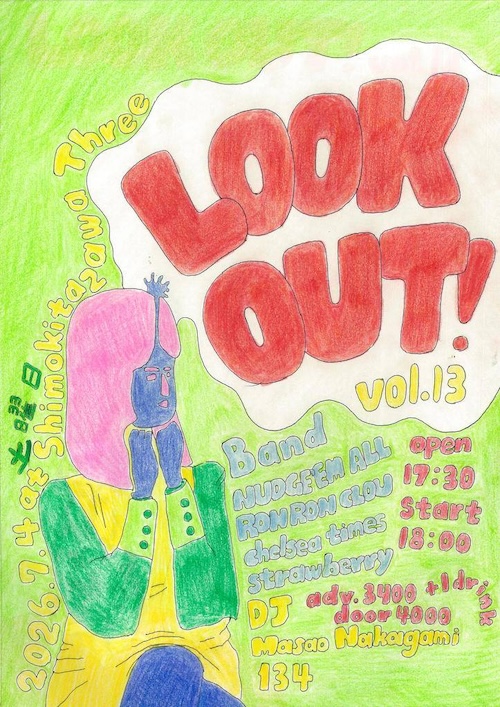 LOOK
OUT!
vol.13
2026.7.4 at Shimokitazawa Three
土曜日
Band
NUDGE'EM ALL
RON RON CLOU
chelsea times
strawberry
DJ
Masao Nakagami
134
open
17:30
Start
18:00
adv.3400 +1drink
door 4000